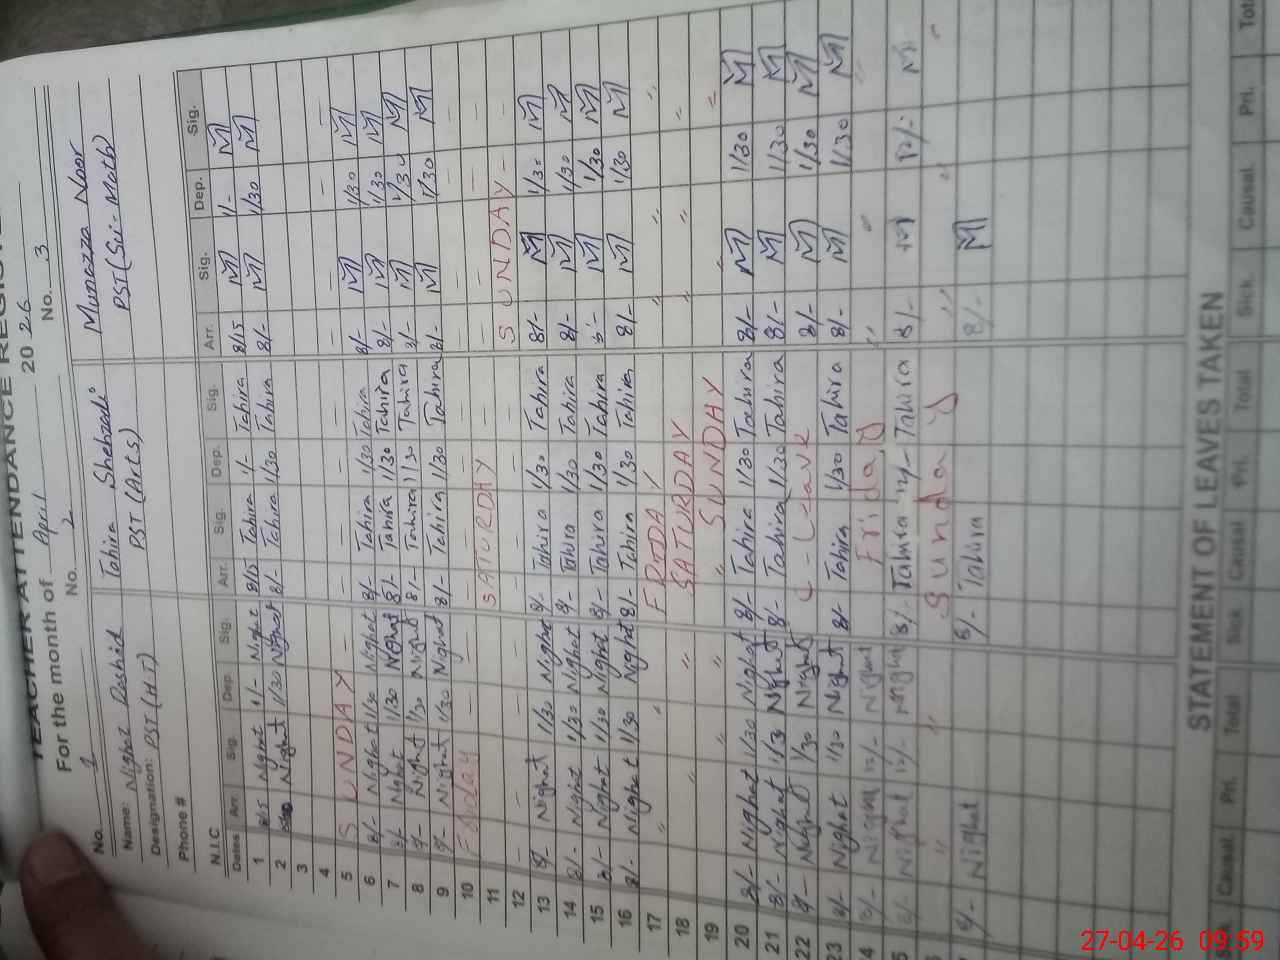 TEACHER ATTENDANCE REGISTER
For the month of April 2026
No. 1 No. 2 No. 3
Name: Nighat Rashid Tahira Shehzadi Munazza Noor
Designation: PST (H.T) PST (Arts) PST (Sci-Math)
Phone #
N.I.C
Dates Arr. Sig. Dep. Sig. Arr. Sig. Dep. Sig. Arr. Sig. Dep. Sig.
1 8/15 Nighat 1/- Nighat 8/15 Tahira 1/- Tahira 8/15 M 1/- M
2 Nighat 1/30 Nighat 8/- Tahira 1/30 Tahira 8/- M 1/30 M
3
4
5 SUNDAY — — — — — — — —
6 8/- Nighat 1/30 Nighat 8/- Tahira 1/30 Tahira 8/- M 1/30 M
7 8/- Nighat 1/30 Nighat 8/- Tahira 1/30 Tahira 8/- M 1/30 M
8 8/- Nighat 1/30 Nighat 8/- Tahira 1/30 Tahira 8/- M 1/30 M
9 8/- Nighat 1/30 Nighat 8/- Tahira 1/30 Tahira 8/- M 1/30 M
10 Friday — — — —
11 SATURDAY — —
12 — — — SUNDAY —
13 8/- Nighat 1/30 Nighat 8/- Tahira 1/30 Tahira 8/- M 1/30 M
14 8/- Nighat 1/30 Nighat 8/- Tahira 1/30 Tahira 8/- M 1/30 M
15 8/- Nighat 1/30 Nighat 8/- Tahira 1/30 Tahira 8/- M 1/30 M
16 8/- Nighat 1/30 Nighat 8/- Tahira 1/30 Tahira 8/- M 1/30 M
17 " " FRIDAY " " "
18 " " SATURDAY " " "
19 " " " SUNDAY " "
20 8/- Nighat 1/30 Nighat 8/- Tahira 1/30 Tahira 8/- M 1/30 M
21 8/- Nighat 1/30 Nighat 8/- Tahira 1/30 Tahira 8/- M 1/30 M
22 8/- Nighat 1/30 Nighat C-Leave 8/- M 1/30 M
23 8/- Nighat 1/30 Nighat 8/- Tahira 1/30 Tahira 8/- M 1/30 M
4 8/- Nighat 12/- Nighat Friday " " "
5 8/- Nighat 12/- Nighat 8/- Tahira 12/- Tahira 8/- M 12/- M
6 " " Sunday " " "
7 8/- Nighat 8/- Tahira 8/- M
STATEMENT OF LEAVES TAKEN
Sick Causal Pri. Total Sick Causal Pri. Total Sick Causal Pri. Total
27-04-26 09:59